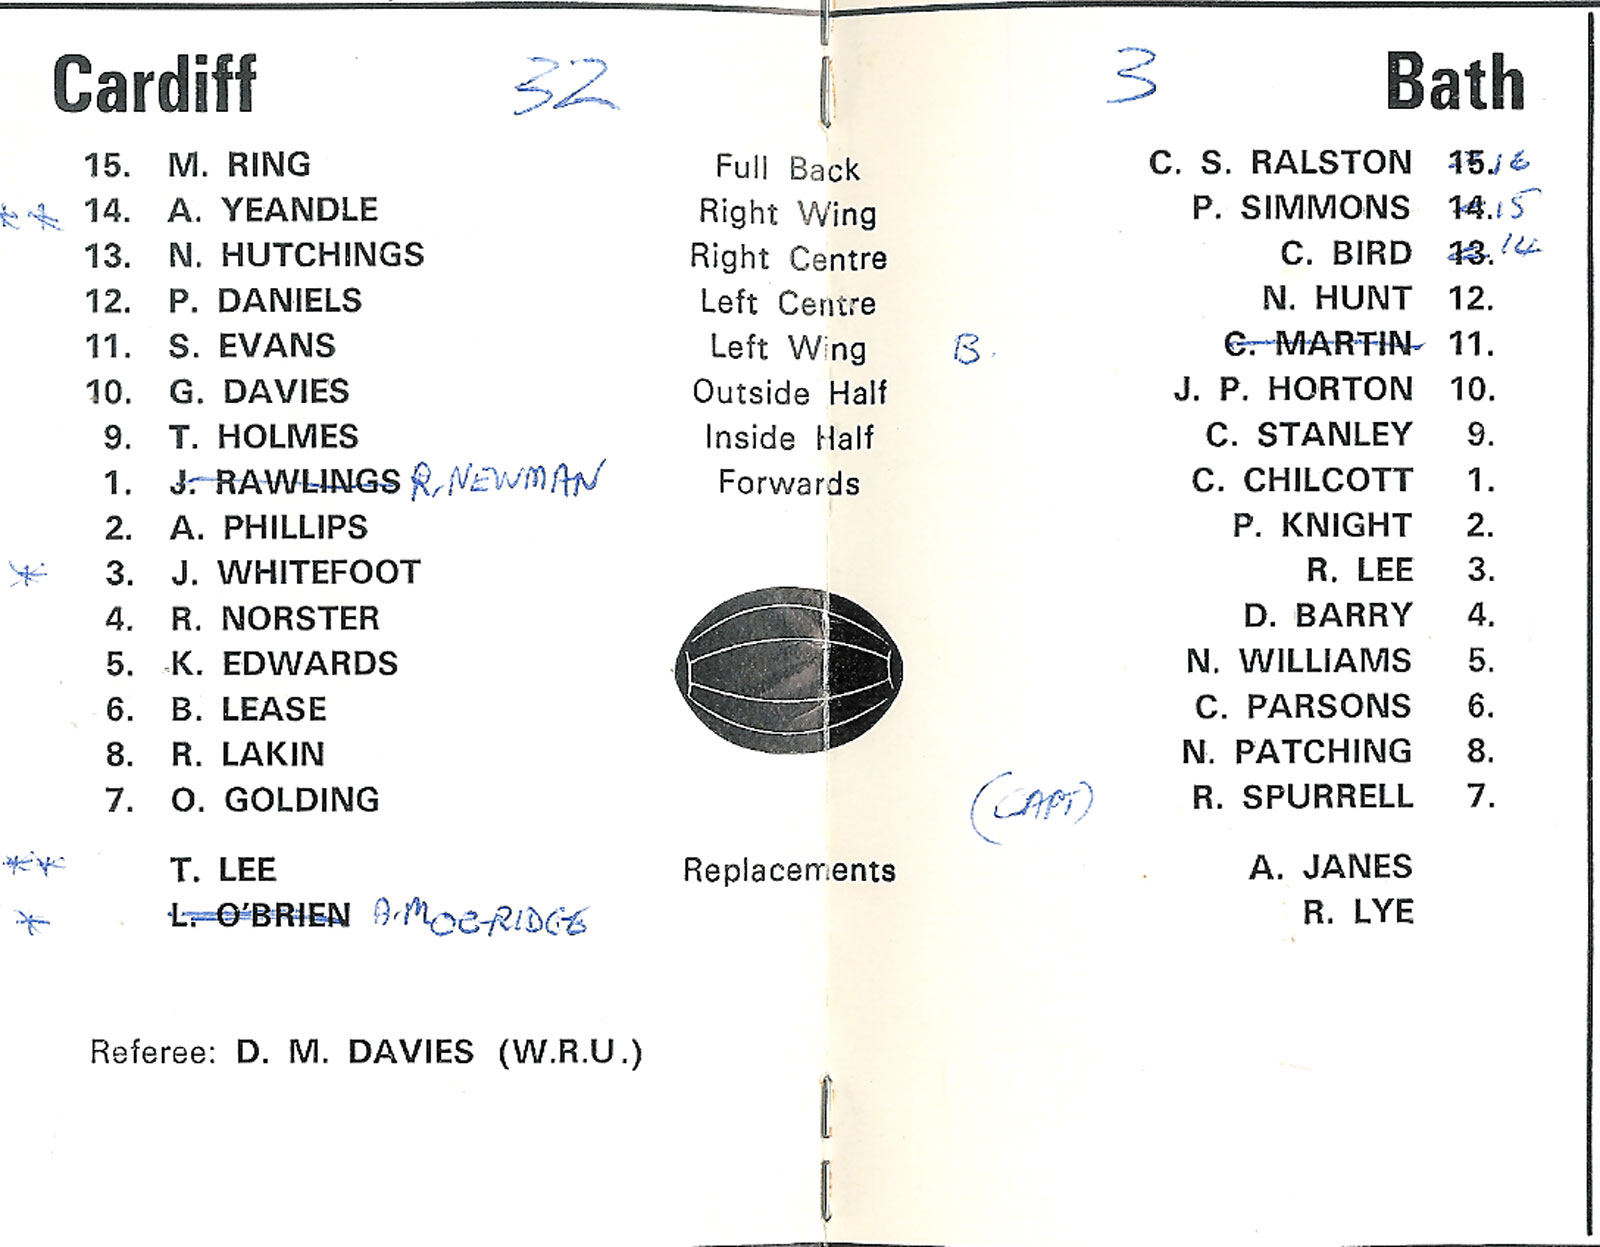 Cardiff 32 3 Bath
15. M. RING Full Back C. S. RALSTON 15. 16
** 14. A. YEANDLE Right Wing P. SIMMONS 14. 15
13. N. HUTCHINGS Right Centre C. BIRD 13. 14
12. P. DANIELS Left Centre N. HUNT 12.
11. S. EVANS Left Wing B. C. MARTIN 11.
10. G. DAVIES Outside Half J. P. HORTON 10.
9. T. HOLMES Inside Half C. STANLEY 9.
1. J. RAWLINGS R. NEWMAN Forwards C. CHILCOTT 1.
2. A. PHILLIPS P. KNIGHT 2.
* 3. J. WHITEFOOT R. LEE 3.
4. R. NORSTER D. BARRY 4.
5. K. EDWARDS N. WILLIAMS 5.
6. B. LEASE C. PARSONS 6.
8. R. LAKIN N. PATCHING 8.
7. O. GOLDING (CAPT) R. SPURRELL 7.
** T. LEE Replacements A. JANES
* L. O'BRIEN A. MOGRIDGE R. LYE
Referee: D. M. DAVIES (W.R.U.)